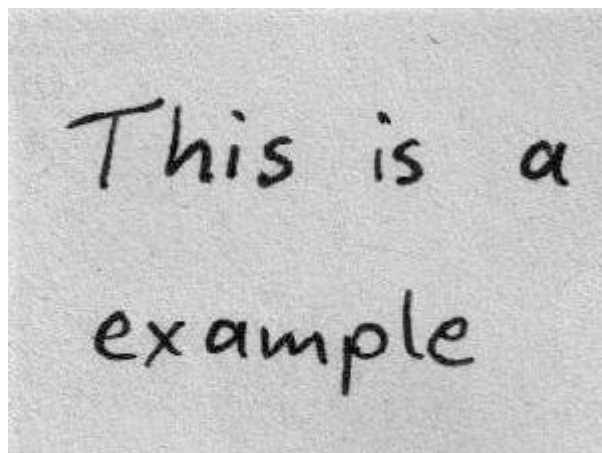 This is a
example